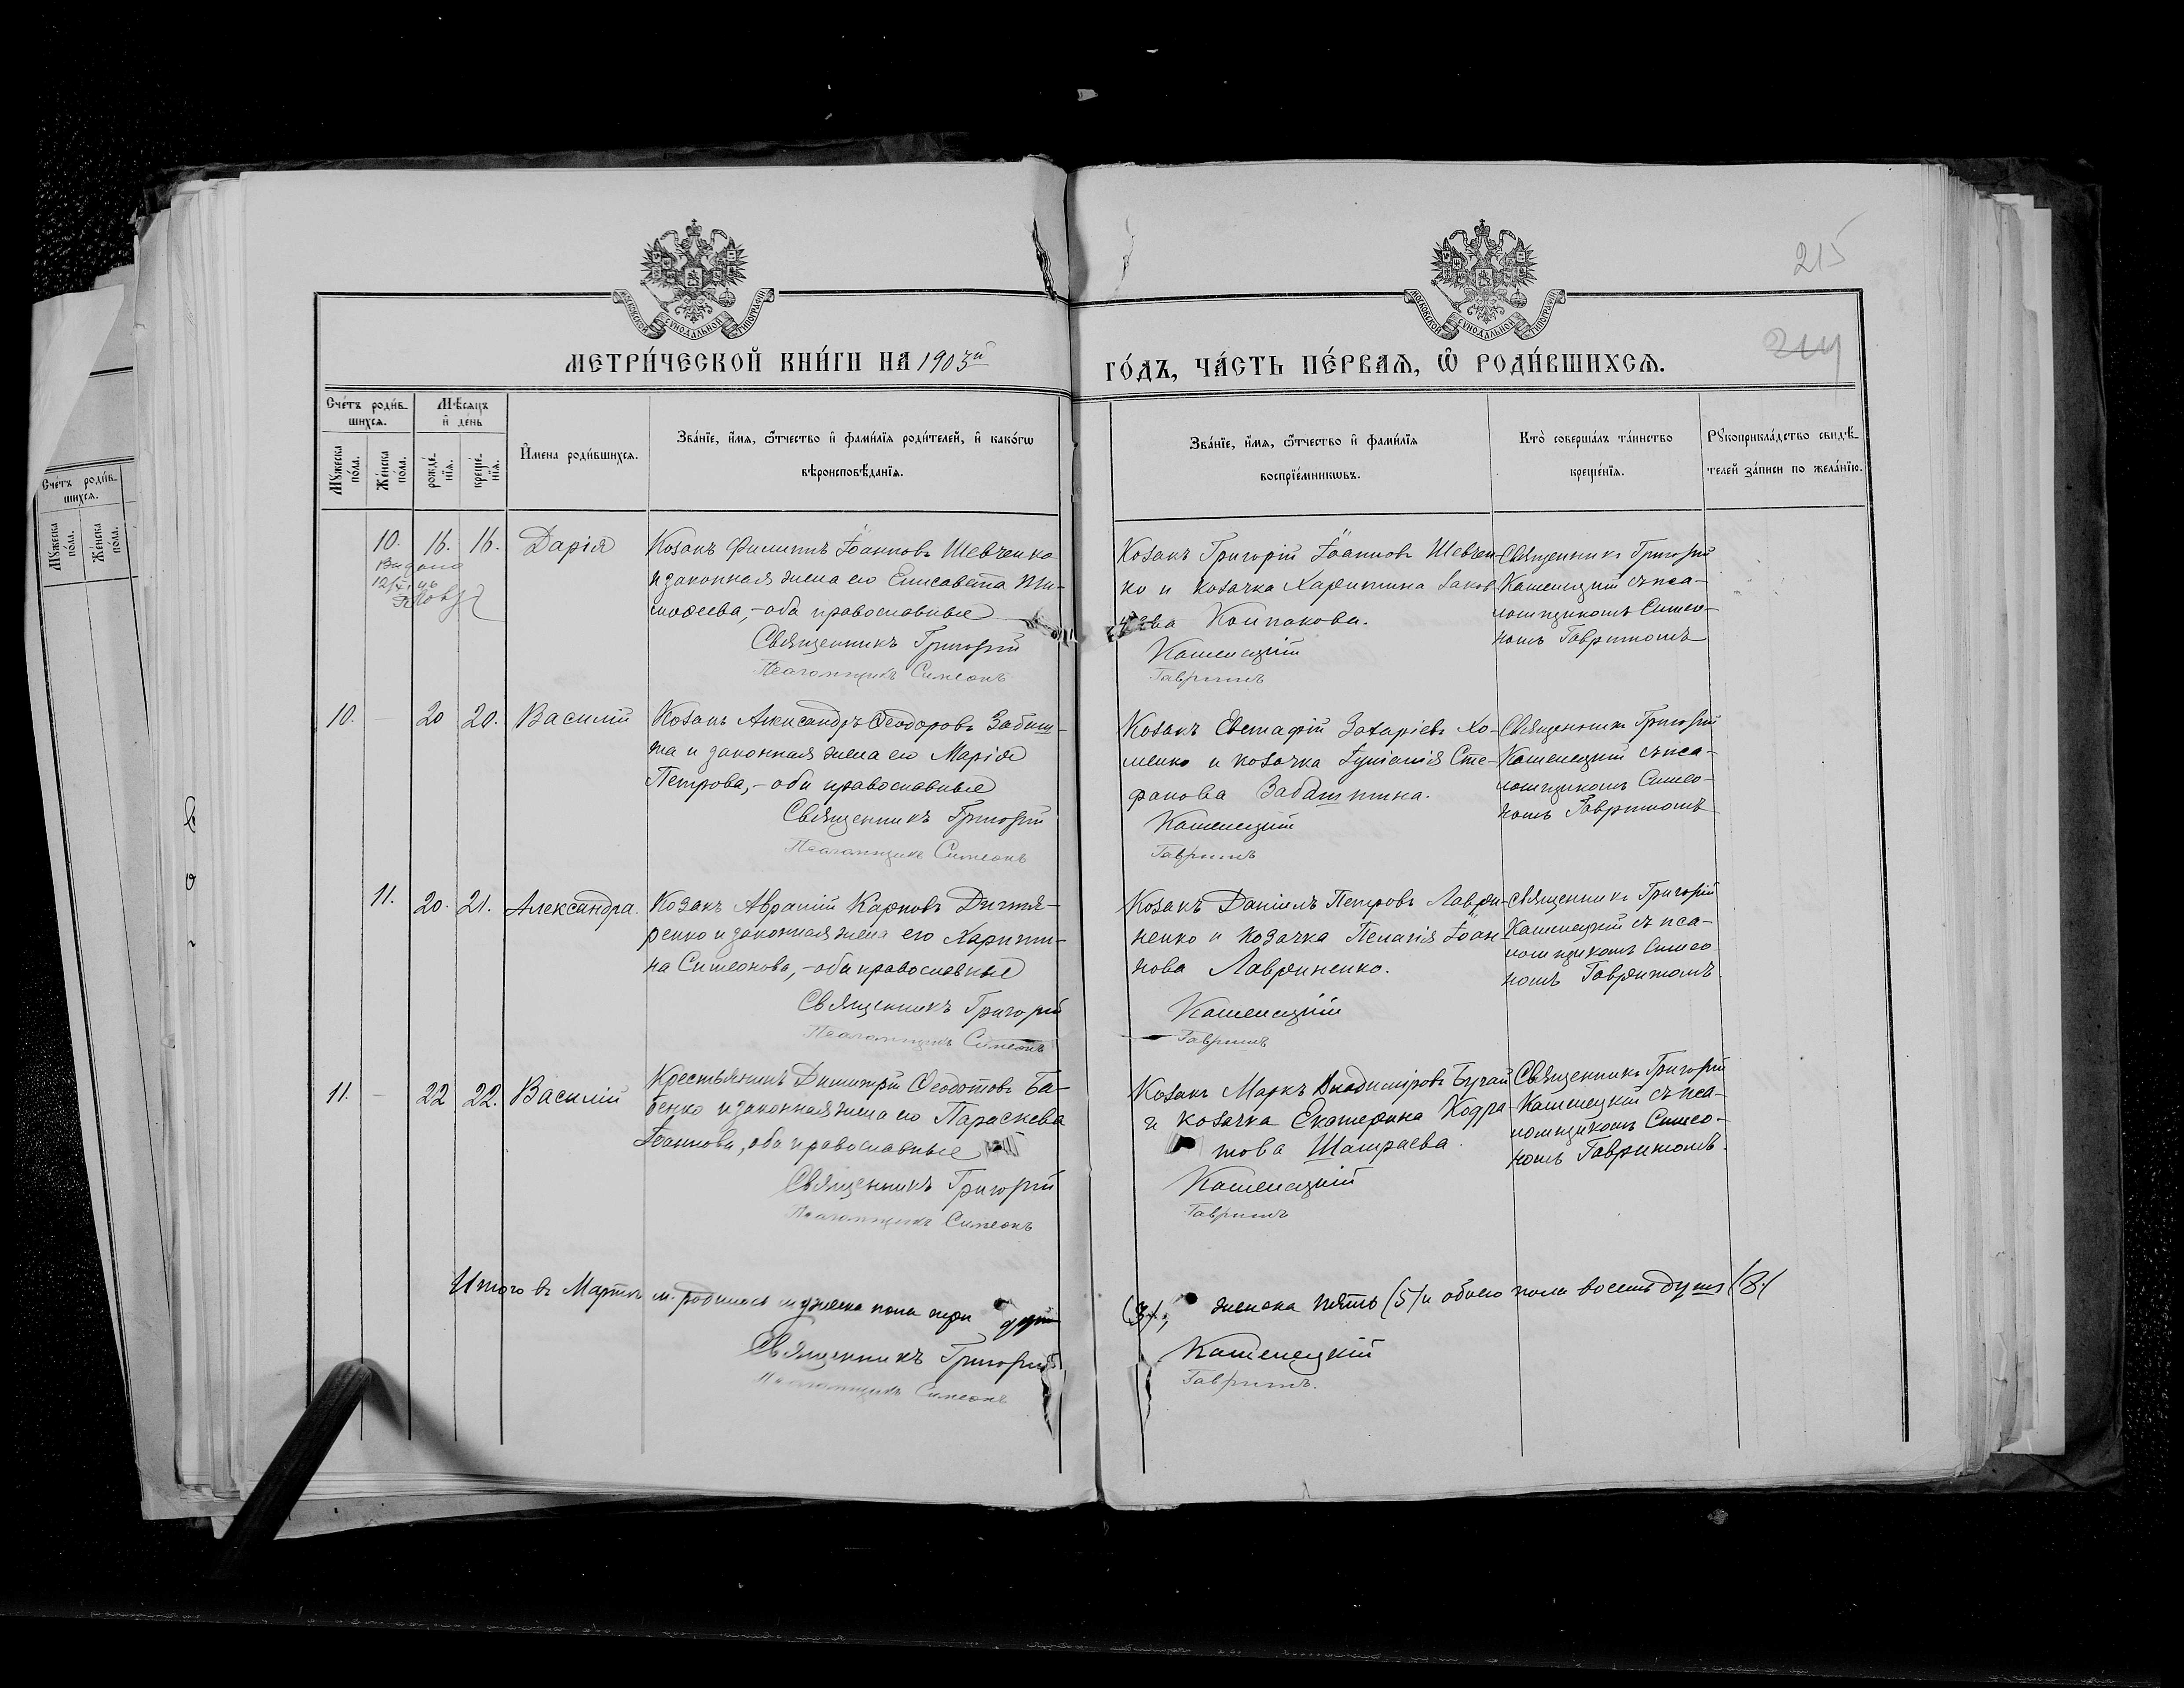 215
214
МОСКОВСКОЙ СѴНОДАЛЬНОЙ ТИПОГРАФІИ
МОСКОВСКОЙ СѴНОДАЛЬНОЙ ТИПОГРАФІИ
МЕТРИ́ЧЕСКОЙ КНИ́ГИ НА 1903й
ГО́ДЪ, ЧА́СТЬ ПЕ́РВАѦ, Ѡ҆ РОДИ́ВШИХСѦ.
Сче́тъ роди́в-
шихсѧ.
Мꙋ́жеска по́ла.
Же́нска по́ла.
Мѣ́сѧцъ
и҆ де́нь
рожде́-
нїѧ.
креще́-
нїѧ.
И҆мена роди́вшихсѧ.
Зва́нїе, и҆́мѧ, ѻ҆́тчество и҆ фами́лїѧ роди́телей, и҆ како́гѡ
вѣроисповѣ́данїѧ.
Зва́нїе, и҆́мѧ, ѻ҆́тчество и҆ фами́лїѧ
воспрїе́мникѡвъ.
Кто̀ соверша́лъ та́инство
креще́нїѧ.
Рꙋкоприкла́дство свидѣ́-
телей за́писи по жела́нїю.
Сче́тъ роди́в-
шихсѧ.
Мꙋ́жеска по́ла.
Же́нска по́ла.
10. 16. 16. Дарія
Козакъ Филиппъ Іоанновъ Шевченко
и законная жена его Елисавета Ти-
моѳеева,-оба православные
Священникъ Григорій
Псаломщикъ Симеонъ
Козакъ Григорій Іоанновъ Шевчен-
ко и козачка Харитина Іаков-
лева Колпакова.
Каменецкій
Гавришъ
Священникъ Григорій
Каменецкій съ пса-
ломщикомъ Симео-
номъ Гавришомъ
10. - 20 20. Василій
Козакъ Александръ Ѳеодоровъ Забаш-
та и законная жена его Марія
Петрова,-оба православные
Священникъ Григорій
Псаломщикъ Симеонъ
Козакъ Евстафій Захаріевъ Хо-
менко и козачка Іуліанія Сте-
фанова Забаштина.
Каменецкій
Гавришъ
Священникъ Григорій
Каменецкій съ пса-
ломщикомъ Симео-
номъ Гавришомъ
11. 20. 21. Александра.
Козакъ Аврамій Карповъ Дигтя-
ренко и законная жена его Харити-
на Симеонова,-оба православные
Священникъ Григорій
Псаломщикъ Симеонъ
Козакъ Даніилъ Петровъ Лаври-
ненко и козачка Пелагія Іоан-
нова Лавриненко.
Каменецкій
Гавришъ
Священникъ Григорій
Каменецкій съ пса-
ломщикомъ Симео
номъ Гавришомъ.
11. - 22 22. Василій
Крестьянинъ Димитрій Ѳеодотовъ Ба-
бенко и законная жена его Параскева
Іоаннова, оба православные
Священникъ Григорій
Псаломщикъ Симеонъ
Козакъ Маркъ Владиміровъ Бугай
и козачка Екатерина Кодра-
това Шамраева.
Каменецкій
Гавришъ
Священникъ Григорій
Каменецкій съ пса-
ломщикомъ Симео-
номъ Гавришомъ.
Итого въ Мартѣ м. родилось мужеска пола три душ
(3), женска пять (5) и обоего пола восемь душъ (8)
Священникъ Григорій
Псаломщикъ Симеонъ
Каменецкій
Гавришъ.